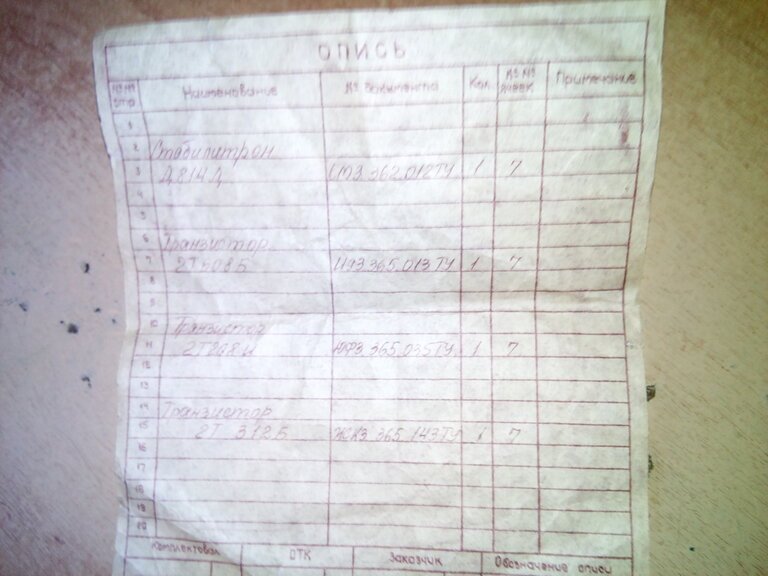 ОПИСЬ
Наименование № документа Кол. №№ ячеек Примечание
1
2 Стабилитрон
3 Д814Д СМ3.362.012ТУ 1 7
4
5
6 Транзистор
7 2Т608Б И93.365.013ТУ 1 7
8
9
10 Транзистор
11 ЮФ3.365.035ТУ 1 7
12
13
14 Транзистор
15 2Т 312Б ЖК3.365.143ТУ 1 7
16
17
18
19
20
Комплектовал ОТК Заказчик Обозначение описи